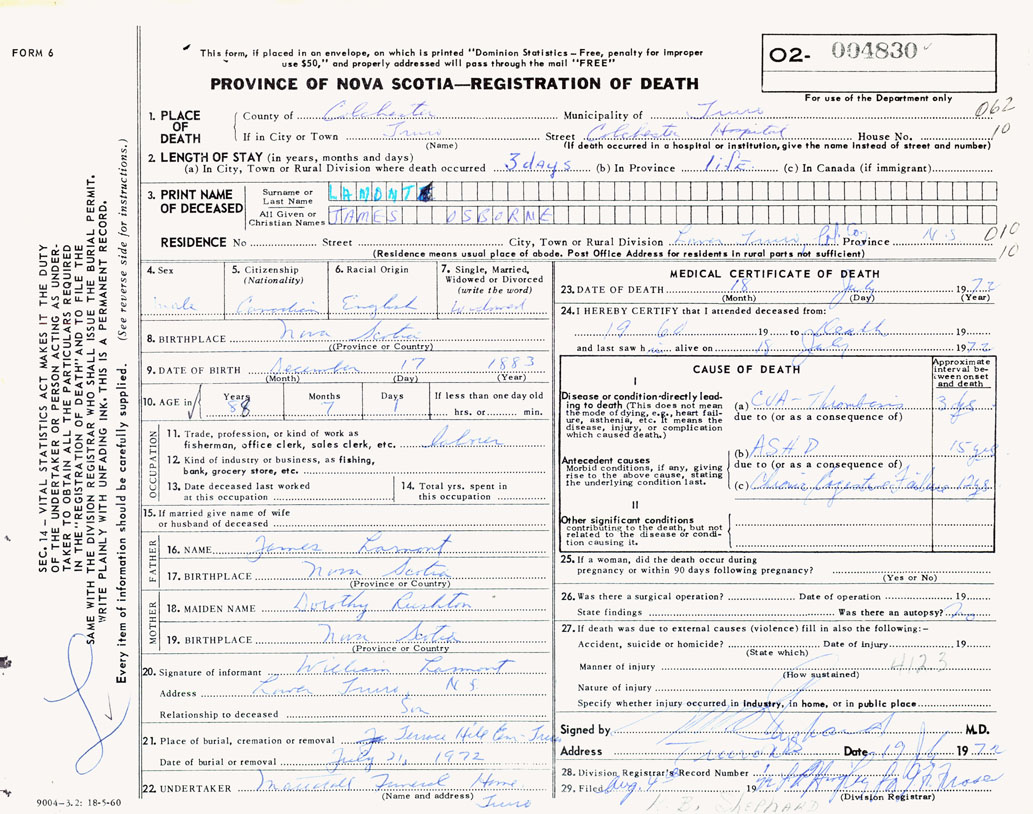 FORM 6
This form, if placed in an envelope, on which is printed "Dominion Statistics – Free, penalty for improper
use $50," and properly addressed will pass through the mail "FREE"
O2- 004830
PROVINCE OF NOVA SCOTIA—REGISTRATION OF DEATH
For use of the Department only
062
10
1. PLACE OF DEATH
County of Colchester Municipality of Truro
If in City or Town Truro Street Colchester Hospital House No.
(Name) (If death occurred in a hospital or institution, give the name instead of street and number)
2. LENGTH OF STAY (in years, months and days)
(a) In City, Town or Rural Division where death occurred 3 days (b) In Province life (c) In Canada (if immigrant)
3. PRINT NAME OF DECEASED
Surname or Last Name LAMONT
All Given or Christian Names JAMES OSBORNE
RESIDENCE No Street City, Town or Rural Division Lower Truro, Col. Co. Province N.S 010
10
(Residence means usual place of abode. Post Office Address for residents in rural parts not sufficient)
4. Sex
male
5. Citizenship
(Nationality)
Canadian
6. Racial Origin
English
7. Single, Married,
Widowed or Divorced
(write the word)
Widowed
8. BIRTHPLACE Nova Scotia
((Province or Country)
9. DATE OF BIRTH December 17 1883
(Month) (Day) (Year)
10. AGE in Years 88 Months 7 Days 1 If less than one day old
hrs. or min.
OCCUPATION
11. Trade, profession, or kind of work as
fisherman, office clerk, sales clerk, etc.
12. Kind of industry or business, as fishing,
bank, grocery store, etc.
13. Date deceased last worked
at this occupation
14. Total yrs. spent in
this occupation
15. If married give name of wife
or husband of deceased
FATHER
16. NAME James Lamont
17. BIRTHPLACE Nova Scotia
(Province or Country)
MOTHER
18. MAIDEN NAME Dorothy Rushton
19. BIRTHPLACE Nova Scotia
(Province or Country)
20. Signature of informant William Lamont
Address Lower Truro, N S
Relationship to deceased Son
21. Place of burial, cremation or removal Terrace Hill Cem-Truro
Date of burial or removal July 21, 1972
22. UNDERTAKER Funeral Home
(Name and address) Truro
MEDICAL CERTIFICATE OF DEATH
23. DATE OF DEATH 18 July 1972
(Month) (Day) (Year)
24. I HEREBY CERTIFY that I attended deceased from:
19 to Death 19
and last saw him alive on 18 July 1972
CAUSE OF DEATH
Approximate interval between onset and death
I
Disease or condition directly leading to death (This does not mean the mode of dying, e.g., heart failure, asthenia, etc. It means the disease, injury, or complication which caused death.)
(a) CVA - Thrombosis 3 ys
due to (or as a consequence of)
Antecedent causes
Morbid conditions, if any, giving rise to the above cause, stating the underlying condition last.
(b) ASHD 15 yrs
due to (or as a consequence of)
(c) Chronic Congestive Failure 12 ys
II
Other significant conditions
contributing to the death, but not related to the disease or condition causing it.
25. If a woman, did the death occur during
pregnancy or within 90 days following pregnancy?
(Yes or No)
26. Was there a surgical operation? Date of operation 19
State findings Was there an autopsy?
27. If death was due to external causes (violence) fill in also the following:–
Accident, suicide or homicide? Date of injury 19
(State which)
Manner of injury 4123
(How sustained)
Nature of injury
Specify whether injury occurred in industry, in home, or in public place
Signed by M.D.
Address Truro NS Date 19 1972
28. Division Registrar's Record Number
29. Filed Aug. 4 19
(Division Registrar)
SHEPHARD
SEC. 14 – VITAL STATISTICS ACT MAKES IT THE DUTY
OF THE UNDERTAKER OR PERSON ACTING AS UNDER-
TAKER TO OBTAIN ALL THE PARTICULARS REQUIRED
IN THE "REGISTRATION OF DEATH" AND TO FILE THE
SAME WITH THE DIVISION REGISTRAR WHO SHALL ISSUE THE BURIAL PERMIT.
WRITE PLAINLY WITH UNFADING INK. THIS IS A PERMANENT RECORD.
Every item of information should be carefully supplied. (See reverse side for instructions.)
9004–3.2: 18-5-60